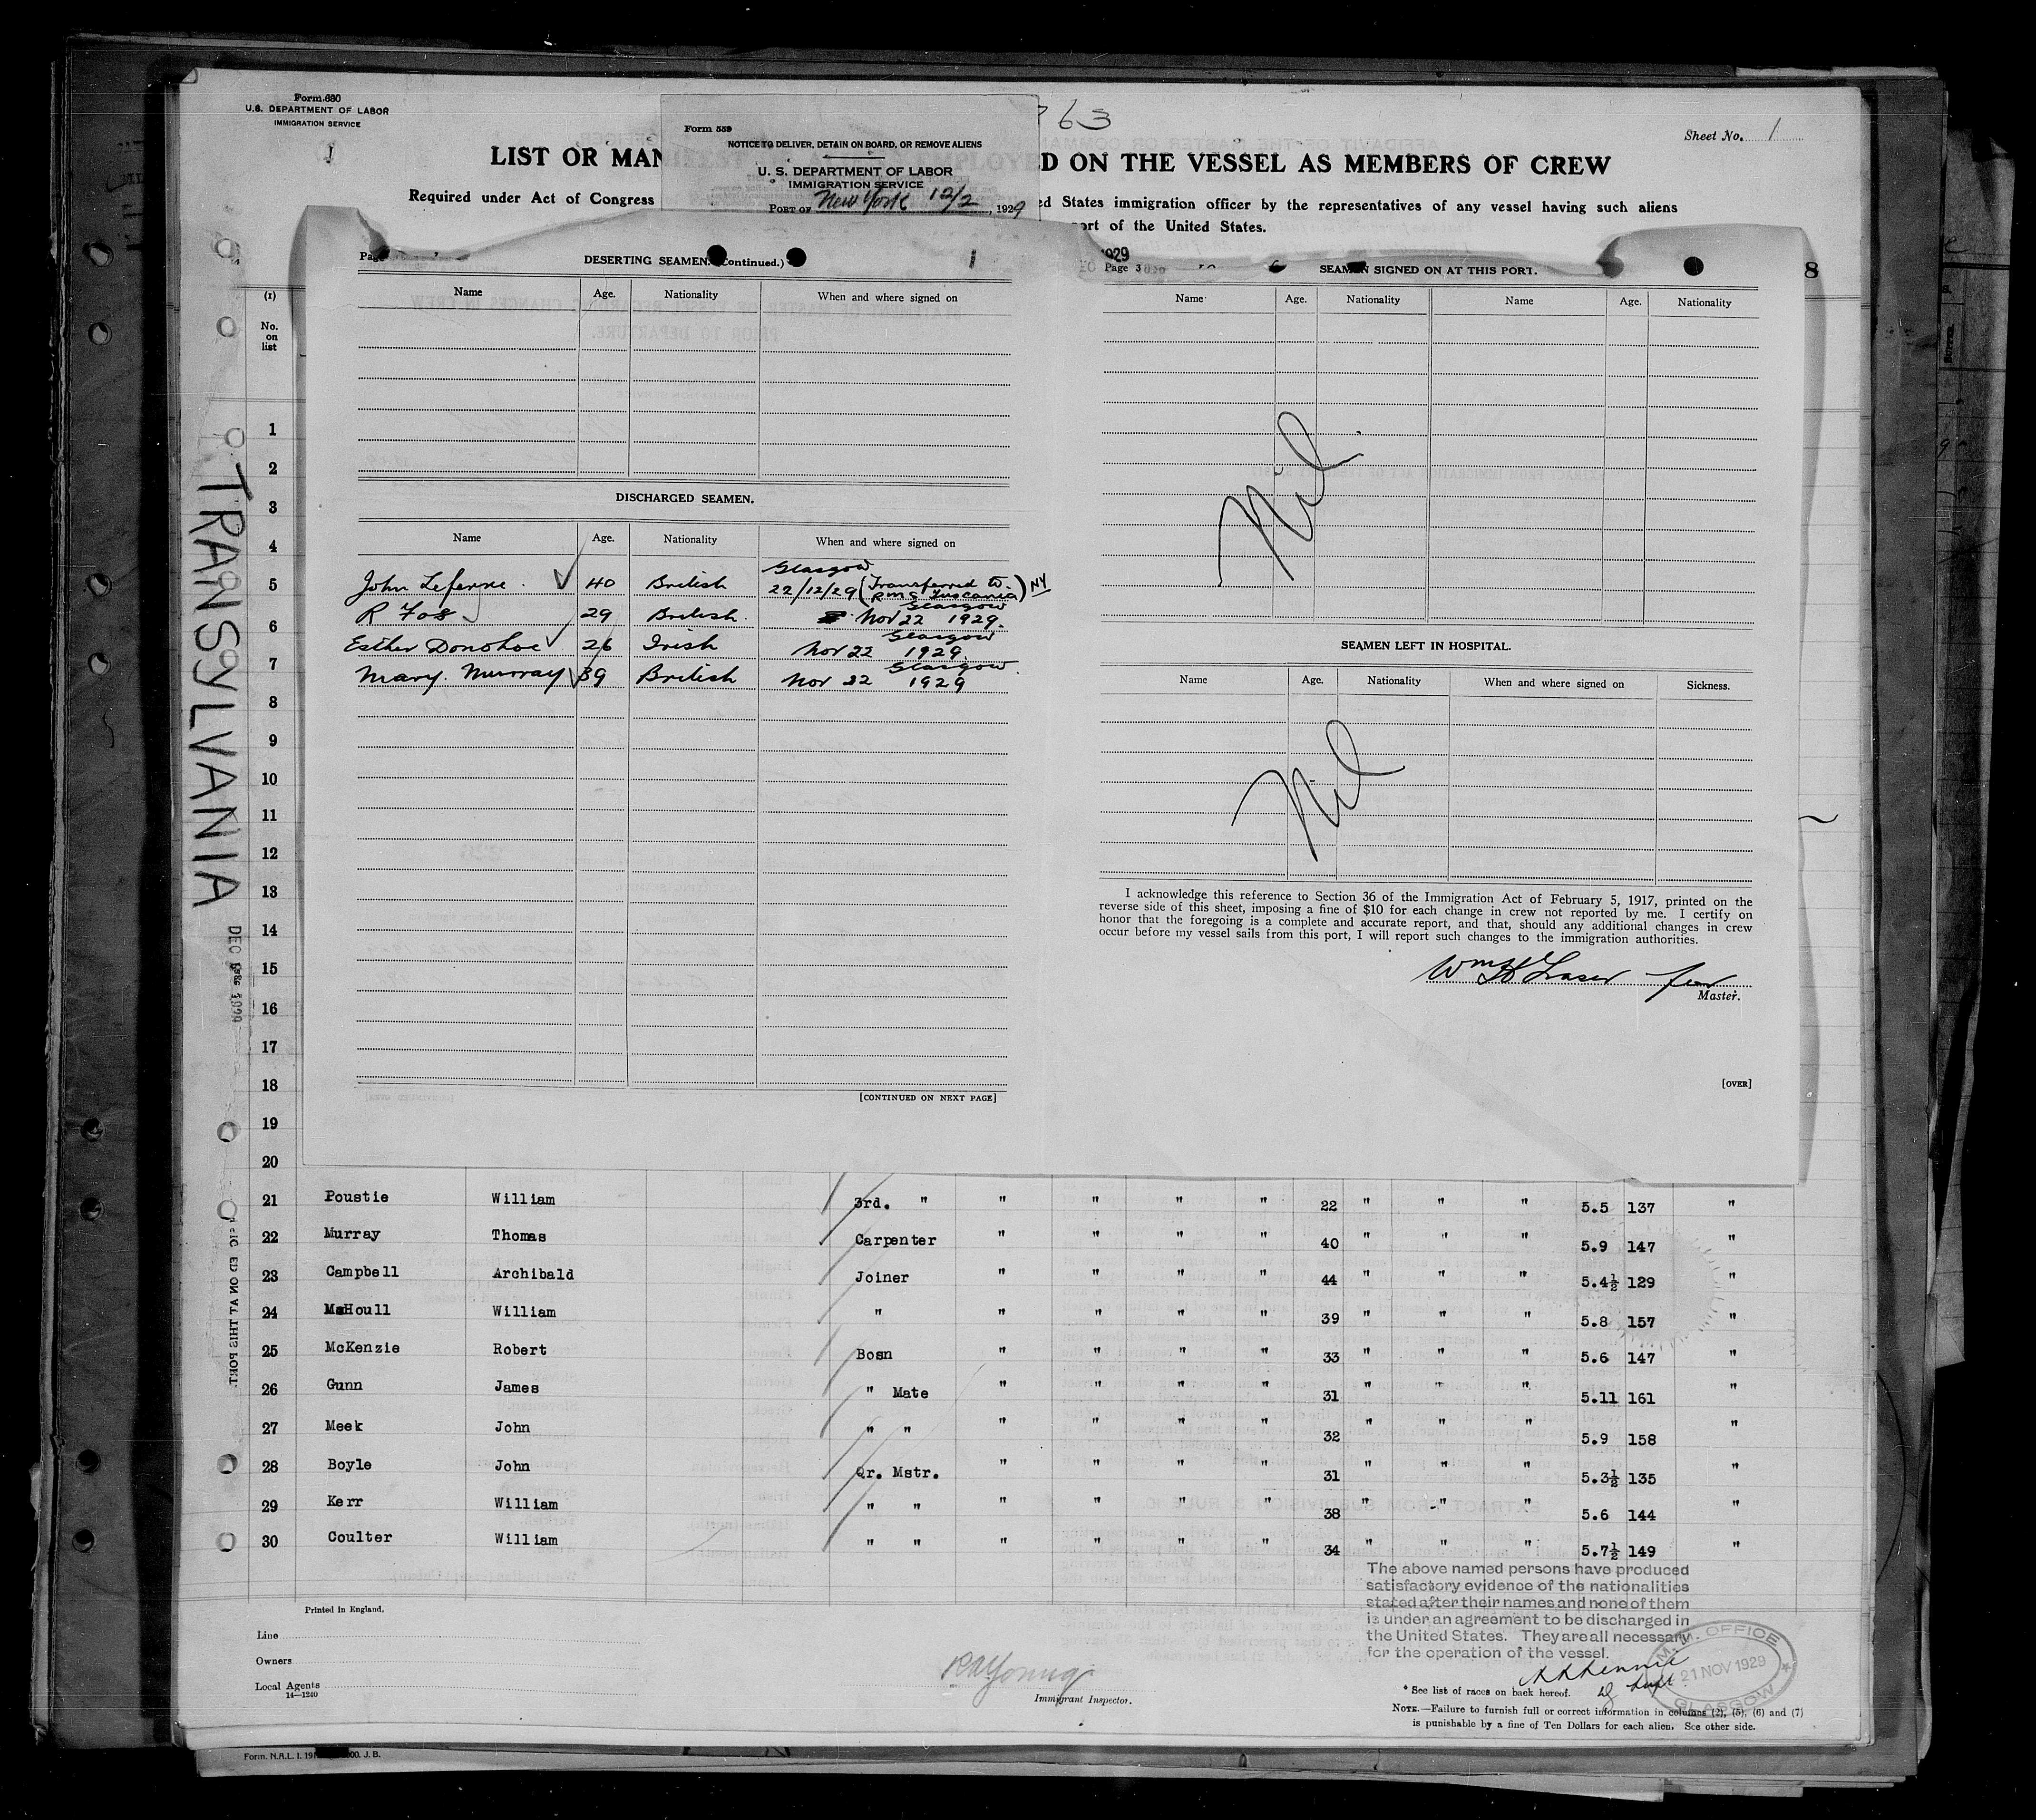 Form 680
U.S. DEPARTMENT OF LABOR
IMMIGRATION SERVICE
63
Sheet No. 1
LIST OR MAN
D ON THE VESSEL AS MEMBERS OF CREW
Required under Act of Congress
ed States immigration officer by the representatives of any vessel having such aliens
ort of the United States.
Form 559
NOTICE TO DELIVER, DETAIN ON BOARD, OR REMOVE ALIENS
U. S. DEPARTMENT OF LABOR
IMMIGRATION SERVICE
PORT OF New York 12/2, 1929
TRANSYLVANIA
(1)
No.
on
list
1
2
3
4
5
6
7
8
9
10
11
12
13
14
15
16
17
18
19
20
DESERTING SEAMEN. (Continued.)
1
Name Age. Nationality When and where signed on
DISCHARGED SEAMEN.
Name Age. Nationality When and where signed on
Glasgow
John Lefevre 40 British 22/12/29 (Transferred to RMS Tuscania) NY
Glasgow
R Fos 29 British Nov 22 1929.
Glasgow
Esther Donohoe 26 Irish Nov 22 1929.
Glasgow
Mary Murray 39 British Nov 22 1929
[CONTINUED ON NEXT PAGE]
1929
Page 3
SEAMEN SIGNED ON AT THIS PORT.
8
Name Age. Nationality Name Age. Nationality
Nil
SEAMEN LEFT IN HOSPITAL.
Name Age. Nationality When and where signed on Sickness.
Nil
I acknowledge this reference to Section 36 of the Immigration Act of February 5, 1917, printed on the
reverse side of this sheet, imposing a fine of $10 for each change in crew not reported by me. I certify on
honor that the foregoing is a complete and accurate report, and that, should any additional changes in crew
occur before my vessel sails from this port, I will report such changes to the immigration authorities.
Wm H Fraser for
Master.
[OVER]
21 Poustie William 3rd. " " " " " 22 " " " 5.5 137 "
22 Murray Thomas Carpenter " " " " 40 " " " 5.9 147 "
23 Campbell Archibald Joiner " " " " 44 " " " 5.4½ 129 "
24 McHoull William " " " " " 39 " " " 5.8 157 "
25 McKenzie Robert Bosn " " " " 33 " " " 5.6 147 "
26 Gunn James " Mate " " " " 31 " " " 5.11 161 "
27 Meek John " " " " " " 32 " " " 5.9 158 "
28 Boyle John Qr. Mstr. " " " " 31 " " " 5.3½ 135 "
29 Kerr William " " " " " " 38 " " " 5.6 144 "
30 Coulter William " " " " " " 34 " " " 5.7½ 149 "
The above named persons have produced
satisfactory evidence of the nationalities
stated after their names and none of them
is under an agreement to be discharged in
the United States. They are all necessary
for the operation of the vessel.
M.M. OFFICE
21 NOV 1929
GLASGOW
Printed in England.
Line
Owners
Local Agents
14—1240
R A Young
Immigrant Inspector.
* See list of races on back hereof.
NOTE.—Failure to furnish full or correct information in columns (2), (5), (6) and (7)
is punishable by a fine of Ten Dollars for each alien. See other side.
Form. N.A.L. 1. 000. J. B.